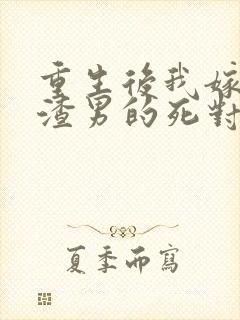 重生後我嫁
渣男的死對
夏季而寫